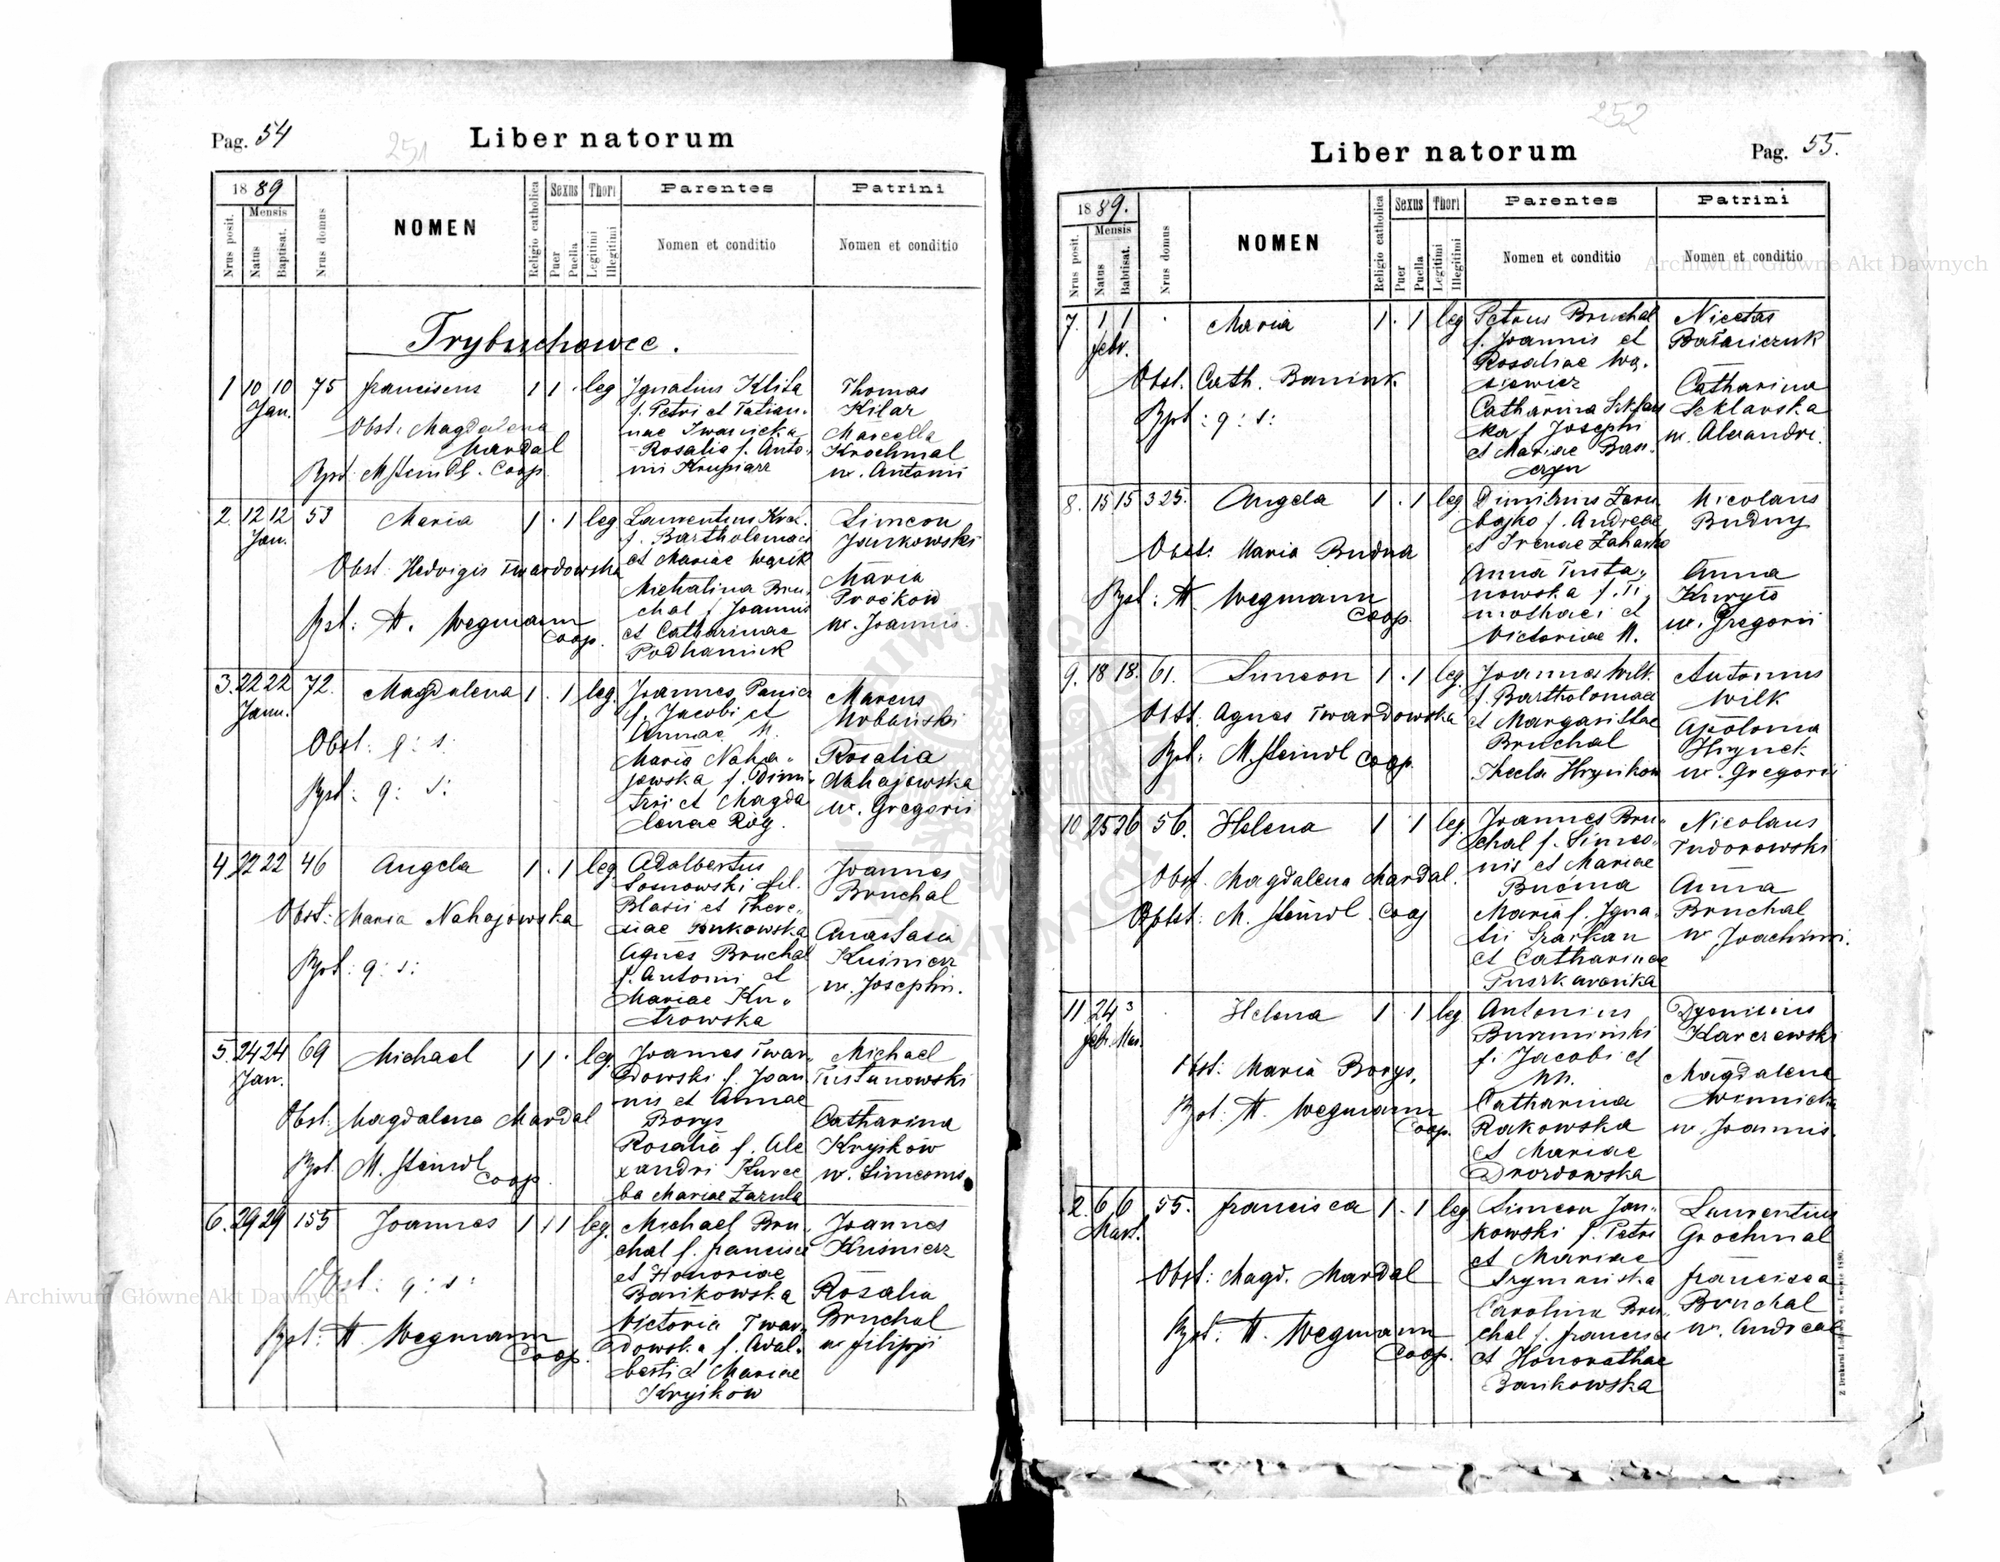 Pag. 54
251
Liber natorum
1889
Nrus posit.
Mensis
Natus
Baptisat.
Nrus domus
NOMEN
Religio catholica
Sexus
Puer
Puella
Thori
Legitimi
Illegitimi
Parentes
Nomen et conditio
Patrini
Nomen et conditio
Trybuchowce.
1 10 10 75 Franciscus 1 1 . leg Ignatius Klita Thomas
Jan. f. Petri et Tatian- Kilar
Obst. Magdalena nae Iwanicka Marcella
Mardal Rosalia f. Anto- Krochmal
Bpt. M. Steindl. Coop. nii Krupiarz ux. Antonii
2 12 12 53 Maria 1 . 1 leg Laurentius Simeon
Jan. f. Bartholomaei Jankowski
et Mariae
Obst. Hedvigis Twardowska
Michalina Bru- Maria
chal f. Joannis Proćków
Bpt: H. Wegmann et Catharinae ux. Joannis.
Coop. Podhaniuk
3. 22 22 72. Magdalena 1 . 1 leg. Joannes Marcus
Janu. f. Jacobi et Urbański
Annae N.
Obst: q: s: Maria Naha- Rosalia
jowska f. Dimi- Nahajowska
Bpt: q: s: trii et Magda ux. Gregorii
lenae Róg.
4 22 22 46 Angela 1 . 1 leg. Adalbertus Joannes
Sosnowski fil. Bruchal
Obst: Maria Nahajowska Blasii et There-
siae Anastasia
Bpt: q: s: Agnes Bruchal Kuśnierz
f. Antonii et ux. Josephi.
Mariae Ku-
trowska
5. 24 24 69 Michael 1 1 . leg. Joannes Twar- Michael
Jan. dowski f. Joan Tustanowski
nis et Annae
Obst. Magdalena Mardal Borys Catharina
Rosalia f. Ale Kryjków
Bpt. M. Steindl xandri ux. Simeonis
Coop. Mariae Zazula
6. 29 29 155 Joannes 1 1 1 leg. Michael Bru- Joannes
chal f. Francisci Kuśnierz
et Honoriae
Obst: q: s: Bańkowska Rosalia
Victoria Twar- Bruchal
Bpt: H. Wegmann dowska f. Adal- ux Filippi
Coop. berti et Mariae
Kryjków
252
Liber natorum
Pag. 55.
1889.
Nrus posit.
Mensis
Natus
Babtisat.
Nrus domus
NOMEN
Religio catholica
Sexus
Puer
Puella
Thori
Legitimi
Illegitimi
Parentes
Nomen et conditio
Patrini
Nomen et conditio
7. 1 1 . Maria 1 . 1 leg Petrus Bruchal Nicetas
Febr. f. Joannis et
Rosaliae
Obst. Cath. Catharina
Catharina Szklarska
Bpt: q: s: f. Josephi ux. Alexandri.
et Mariae
8. 15 15 325. Angela 1 . 1 leg Dimitrius Nicolaus
f. Andreae Budny
Obst: Maria Budna et Irenae
Anna Tusta- Anna
Bpt: H. Wegmann nowska f. Ti-
Coop. mothaei et ux. Gregorii
Victoriae N.
9. 18 18. 61. Simeon 1 . 1 leg. Joannes Wilk Antonius
f. Bartholomaei Wilk
Obst. Agnes Twardowska et Margarithae Apolonia
Bruchal Hrynck
Bpt: M. Steindl Coop. Thecla ux. Gregorii
10 25 26 56. Helena 1 . 1 leg Joannes Bru- Nicolaus
chal f. Simeo- Tudorowski
nis et Mariae
Obst. Magdalena Mardal. Anna
Maria f. Igna- Bruchal
Bptst: M. Steindl. Coop tii ux Joachimi.
et Catharinae
11 24 3 . Helena 1 . 1 leg Antonius Dyonisius
Feb. Mar. Karczewski
f. Jacobi et
Obst: Maria Borys, NN. Magdalena
Catharina Winnicka
Bpt: H. Wegmann Rakowska ux Joannis.
Coop. et Mariae
Drozdowska
2. 6 6 55. Francisca 1 . 1 leg Simeon Jan- Laurentius
Mart. kowski f. Petri Grochmal
et Mariae
Obst: Magd. Mardal Szymańska Francisca
Carolina Bru- Bruchal
Bpt: H. Wegmann chal f. Francisci ux. Andreae
Coop. et Honorathae
Bańkowska
Archiwum Główne Akt Dawnych
Archiwum Główne Akt Dawnych